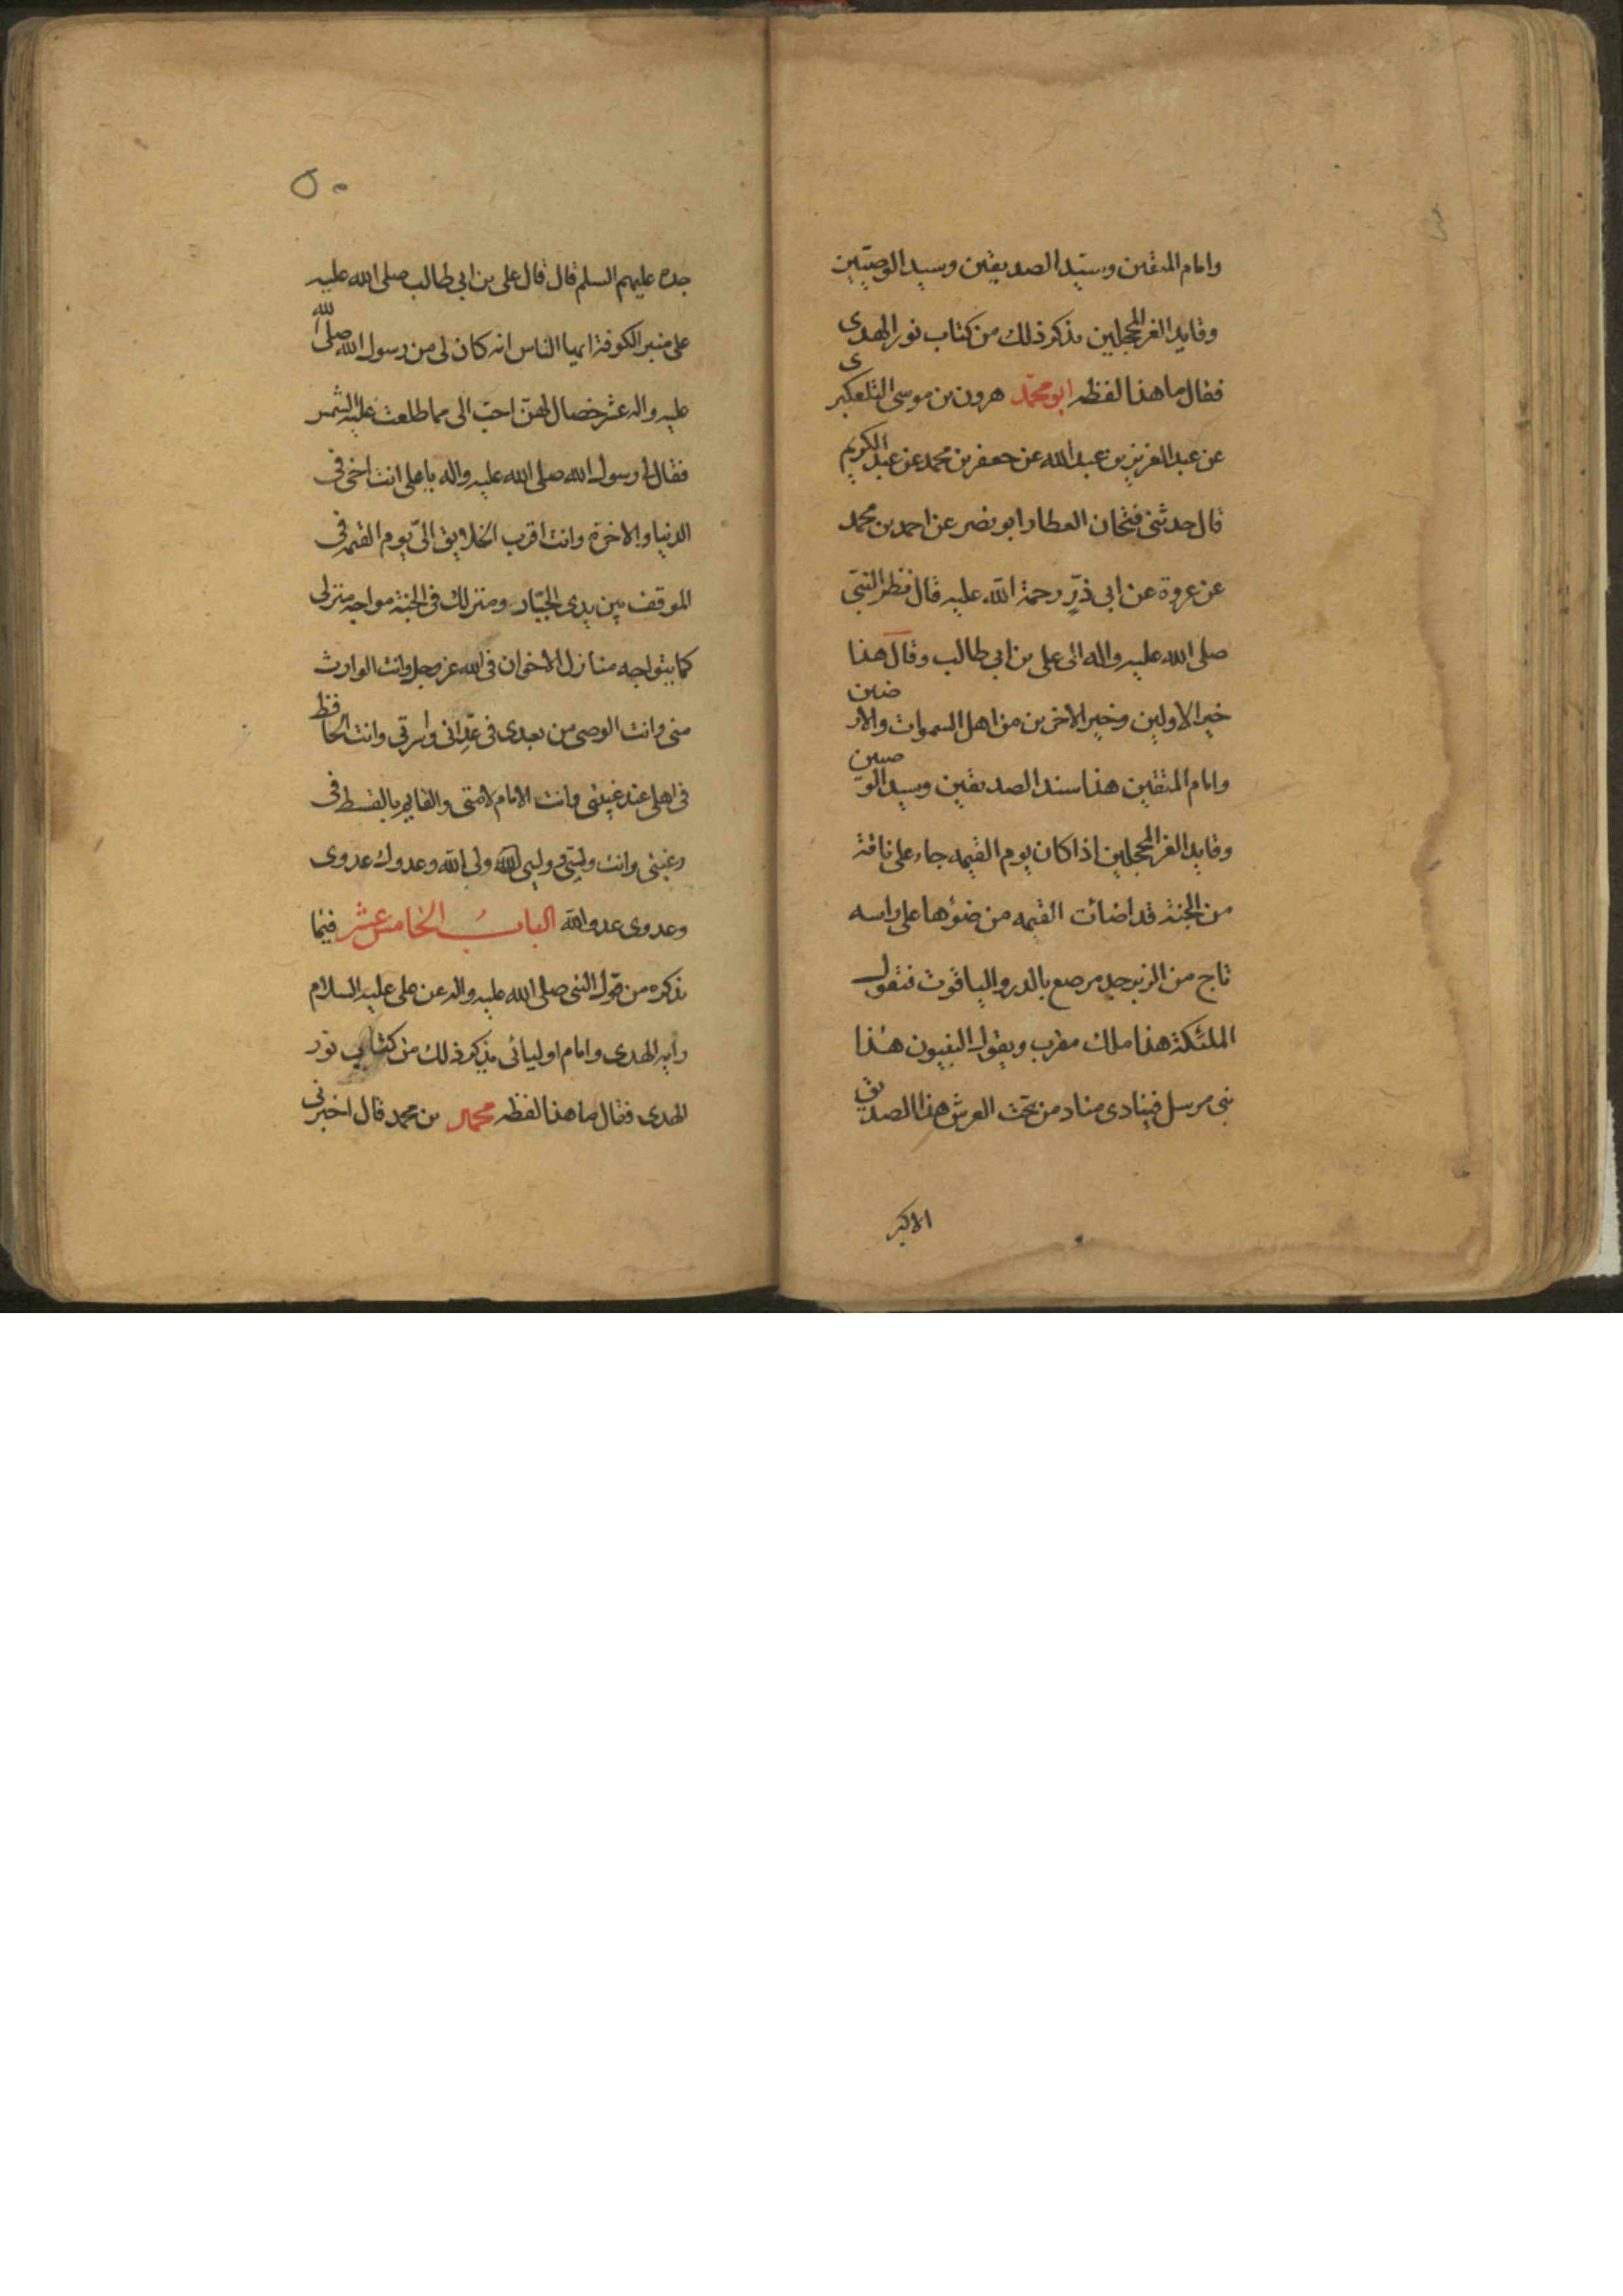 وامام المتقين وسيّد الصديقين وسيد الوصيّين
وقايد الغر المحجلين نذكر ذلك من كتاب نور الهدى
فقال ما هذا لفظه ابو محمّد هرون بن موسى التلعكبرى
عن عبد العزيز بن عبد الله عن جعفر بن محمد عن عبد الكريم
قال حدثنى فتحان العطار ابو نصر عن احمد بن محمد
عن عروة عن ابى ذرّ رحمة الله عليه قال نظر النبىّ
صلى الله عليه واله الى على بن ابى طالب وقال هذا
خير الاولين وخير الاخرين من اهل السموات والارضين
وامام المتقين هذا سند الصديقين وسيد الوصيين
وقايد الغر المحجلين اذا كان يوم القيمه جاء على ناقة
من الجنة قد اضائت القيمه من ضوئها على راسه
تاج من الزبرجد مرصع بالدر والياقوت فتقول
الملئكة هذا ملك مقرب ويقول النبيون هذا
نبى مرسل فينادى مناد من تحت العرش هذا الصديق
الاكبر
٥٠
جده عليهم السلم قال قال على بن ابى طالب صلى الله عليه
على منبر الكوفة ايها الناس انه كان لى من رسول الله صلى الله
عليه واله عشر خصال لهنّ احبّ الى مما طلعت عليه الشمس
فقال لى رسول الله صلى الله عليه واله يا على انت اخى فى
الدنيا والاخرة وانت اقرب الخلايق الىّ يوم القيمه فى
الموقف بين يدى الجبّار ومنزلك فى الجنة مواجه منزلى
كما يتواجه منازل الاخوان فى الله عز وجل وانت الوارث
منى وانت الوصى من بعدى فى عداتى واسرتى وانت الحافظ
فى اهلى عند غيبتى وانت الامام لامتى والقايم بالقسط فى
رعيتى وانت وليّى ووليى ولى الله وعدوك عدوى
وعدوى عدو الله الباب الخامس عشر فيما
نذكره من قول النبى صلى الله عليه واله عن على عليه السلام
رايه الهدى وامام اوليائى نذكر ذلك من كتاب نور
الهدى فقال ما هذا لفظه محمد بن محمد قال اخبرنى